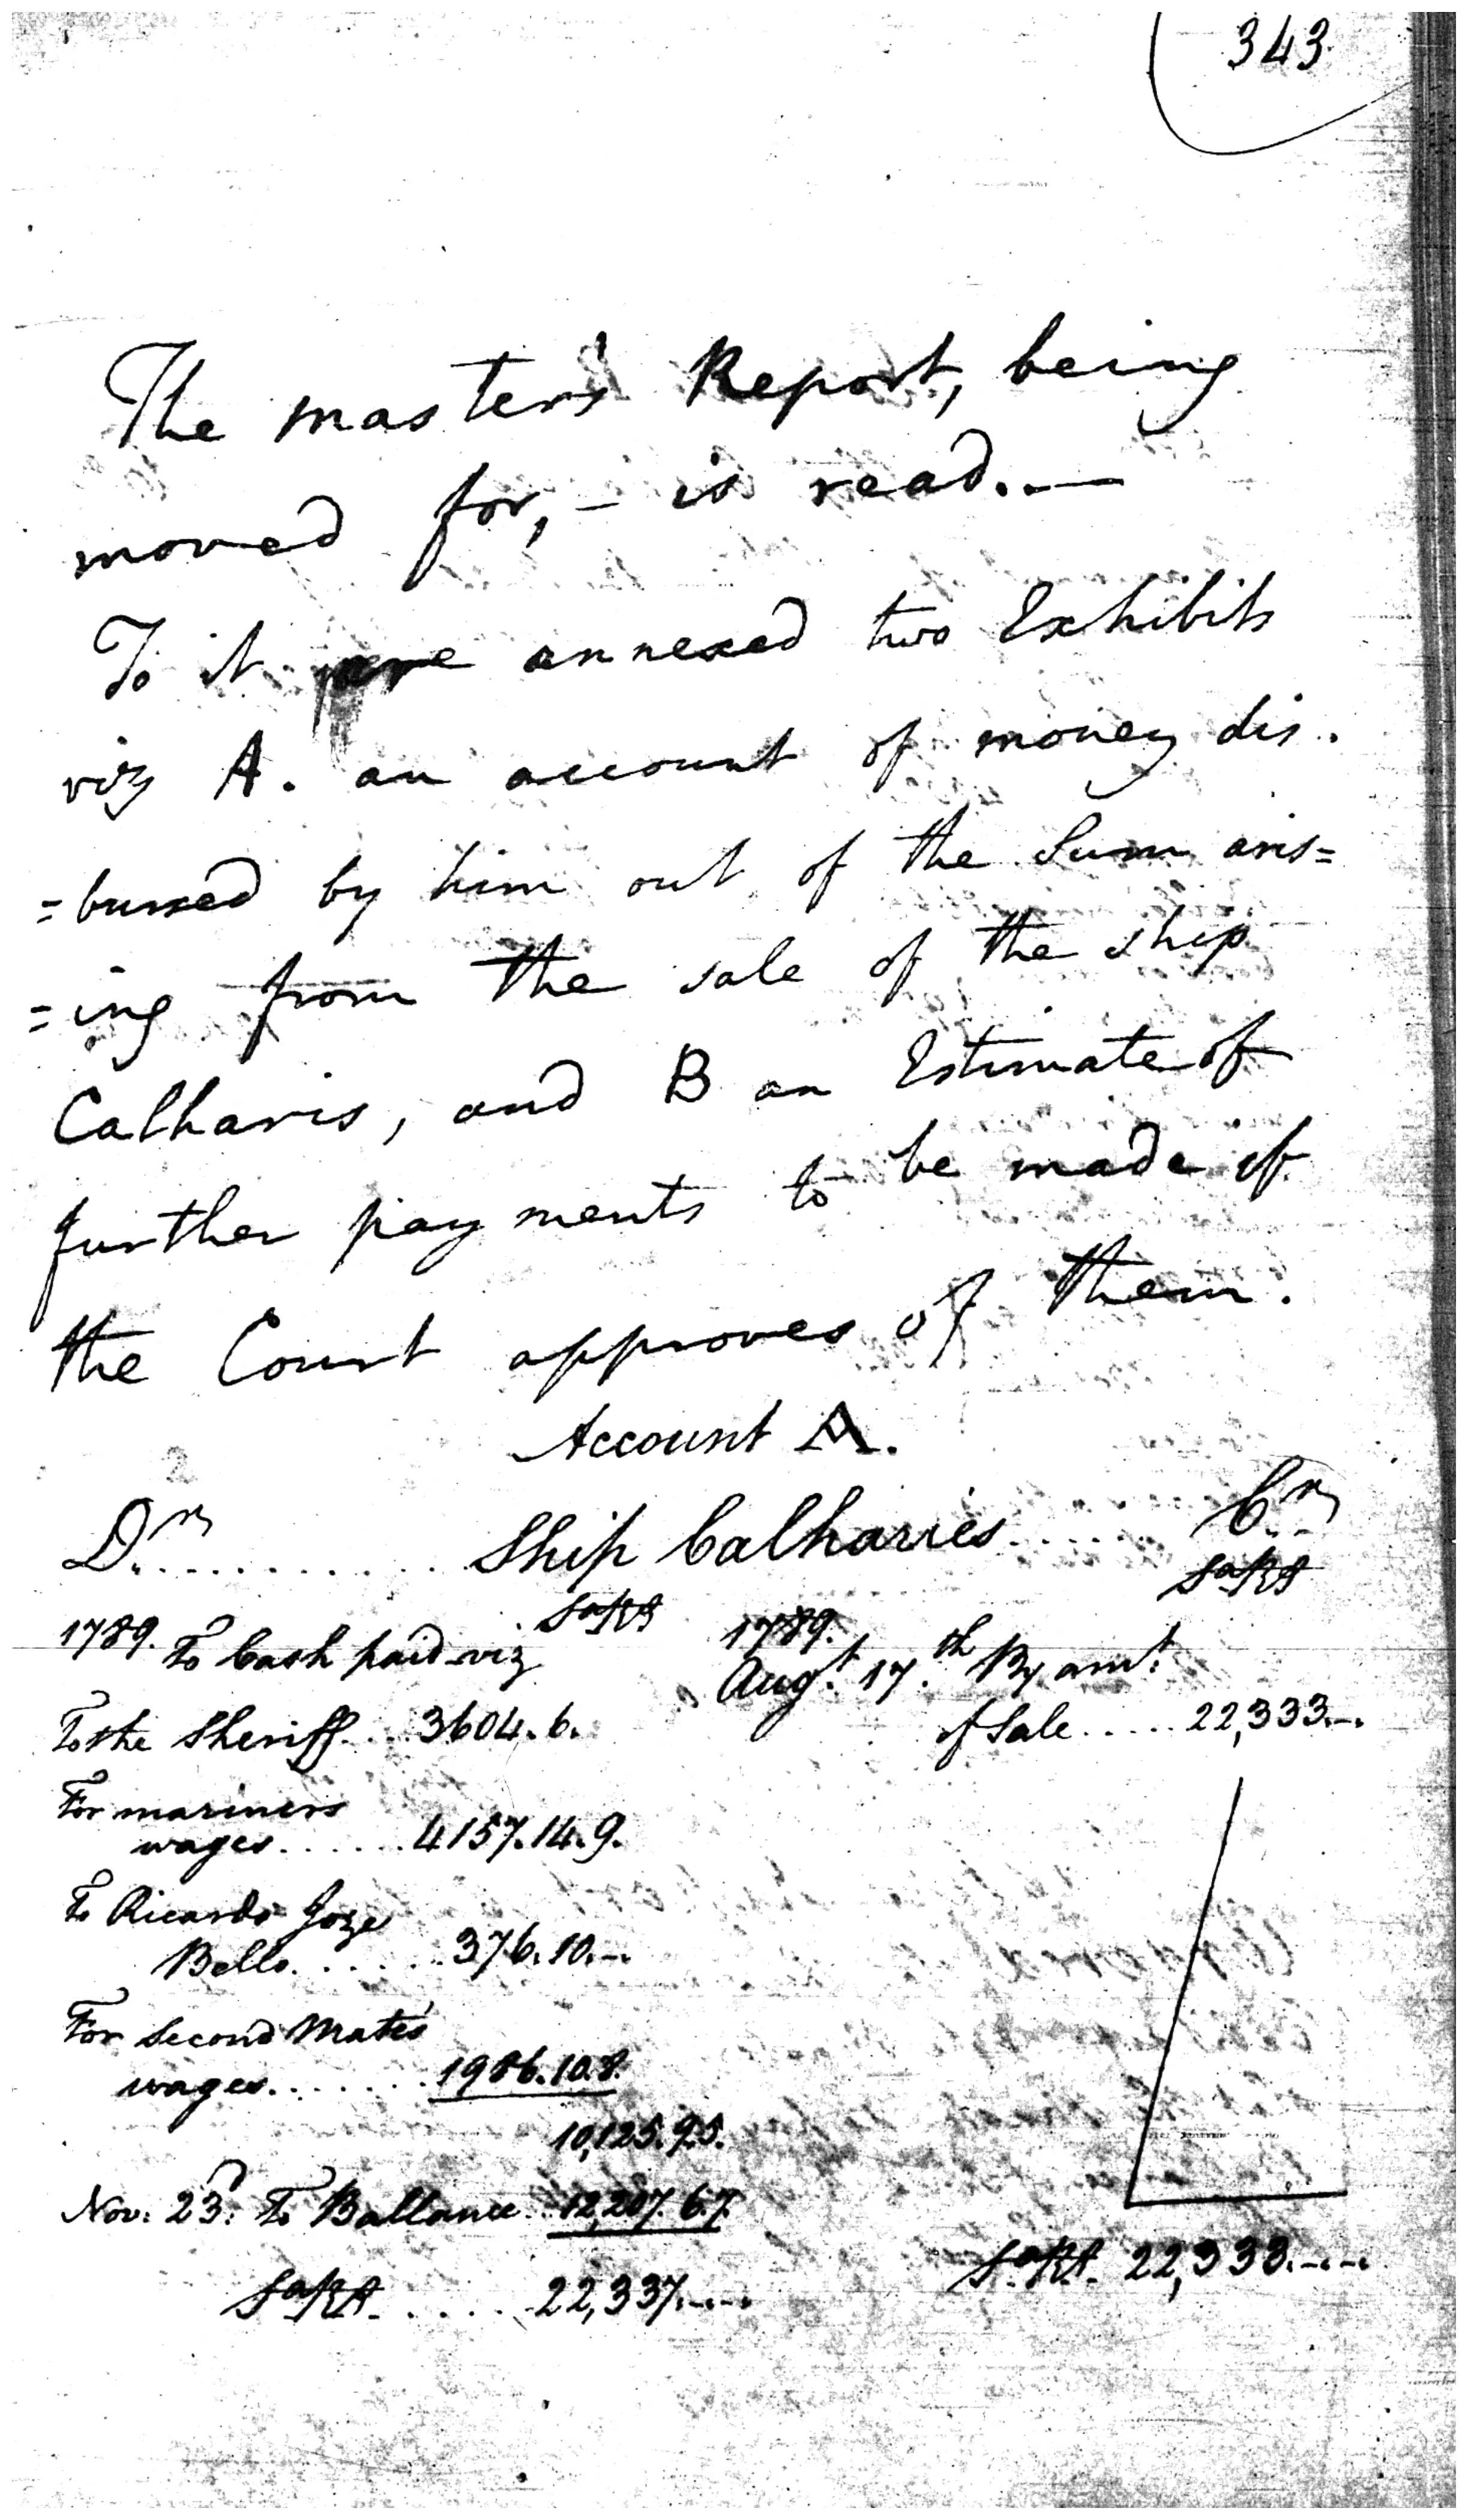 343.
The masters Report, being
moved for, - is read. —
To it were annexed two Exhibits
viz A. an account of money dis.
=bursed by him out of the Sum aris=
=ing from the sale of the ship
Calharis, and B an Estimate of
further payments to be made if
the Court approves of them.
Account A.
Dr. . . . . . . . . . . Ship Calharies . . . . . Cr.
SaRs SaRs
1789. To Cash paid viz 1789.
Augt. 17.th By amt.
To the Sheriff . . . 3604. 6. of Sale . . . . . 22,333.-.
For mariners
wages . . . . . . 4157. 14. 9.
To Ricardo Joze
Bello . . . . . . 376. 10. -.
For Second Mates
wages . . . . . . . 1986. 10. 8.
10,125. 9. 5.
Nov. 23d. To Ballance 12,207. 6. 7.
SaRs. 22,333. -. -.
SaRs . . . . . 22,337. -. -.